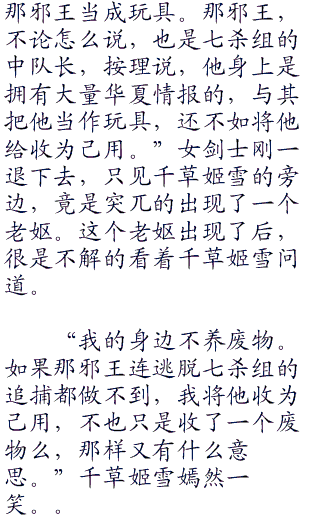 那邪王当成玩具。那邪王，
不论怎么说，也是七杀组的
中队长，按理说，他身上是
拥有大量华夏情报的，与其
把他当作玩具，还不如将他
给收为己用。”女剑士刚一
退下去，只见千草姬雪的旁
边，竟是突兀的出现了一个
老妪。这个老妪出现了后，
很是不解的看着千草姬雪问
道。
“我的身边不养废物。
如果那邪王连逃脱七杀组的
追捕都做不到，我将他收为
己用，不也只是收了一个废
物么，那样又有什么意
思。”千草姬雪嫣然一
笑。。